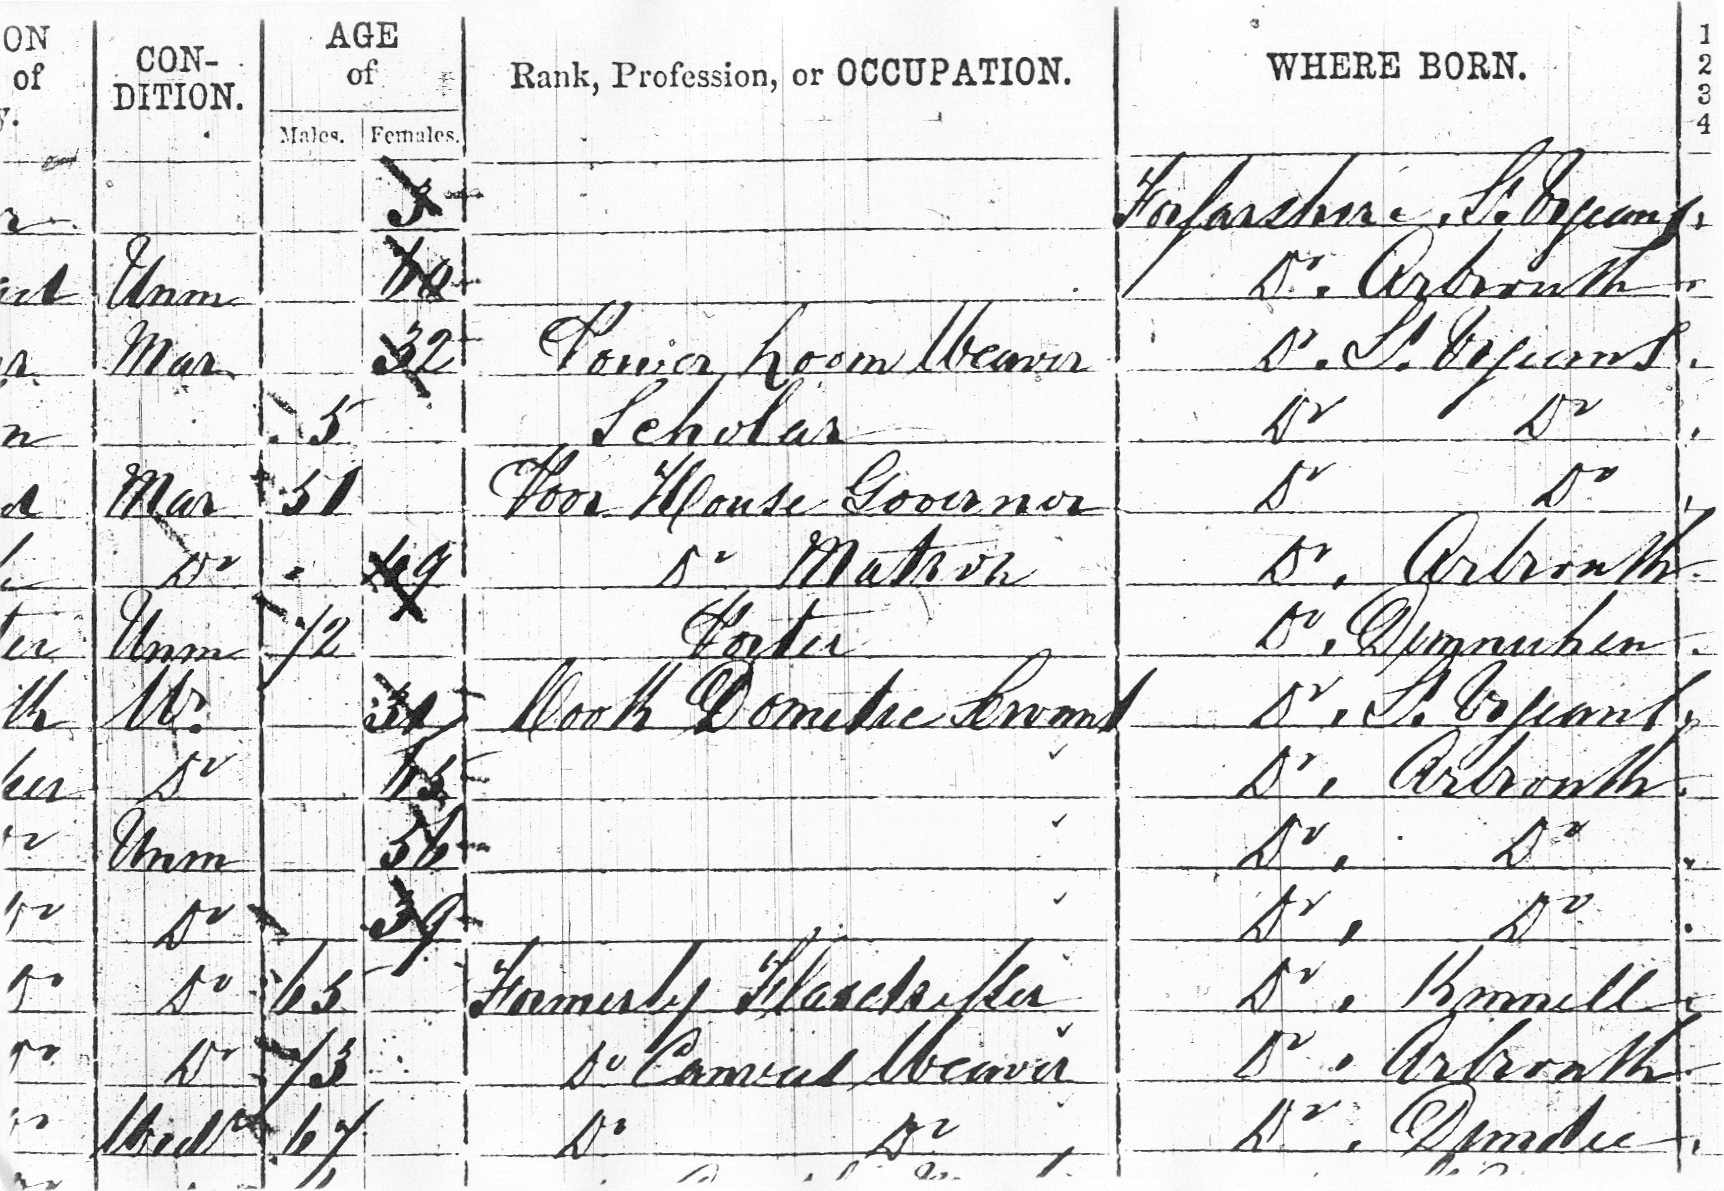 ON CON- AGE Rank, Profession, or OCCUPATION. WHERE BORN. 1
of DITION. of 2
y. Males. Females. 3
4
3 Forfarshire. St. Vigeans.
Unm 60 Do. Arbroath
Mar 32 Power Loom Weaver Do. St. Vigeans.
n 5 Scholar Do Do
d Mar 51 Poor House Governor Do Do
Do 49 Do Matron Do. Arbroath
ter Unm 72 Porter Do. Dunnichen
th W. 31 Cook Domestic Servant Do. St. Vigeans
ker Do 65 Do. Arbroath
Do Unm 56 Do. Do
Do Do 39 Do. Do
Do Do 65 Formerly Flaxdresser Do. Kinnell
Do Do 73 Do Canvas Weaver Do. Arbroath
Do Widr 67 Do Do Do. Dundee